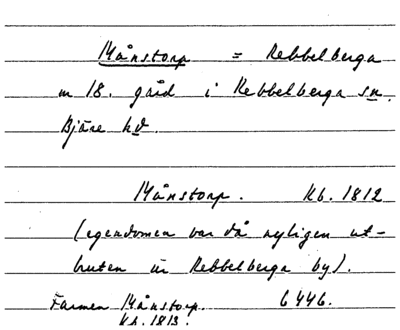 Månstorp = Rebbelberga
n 18. gård i Rebbelberga sn.
Bjäre hd.
Månstorp. Kb. 1812
(egendomen var då nyligen ut-
bruten ur Rebbelberga by).
Formen Månstorp. 6446.
Kb. 1813.